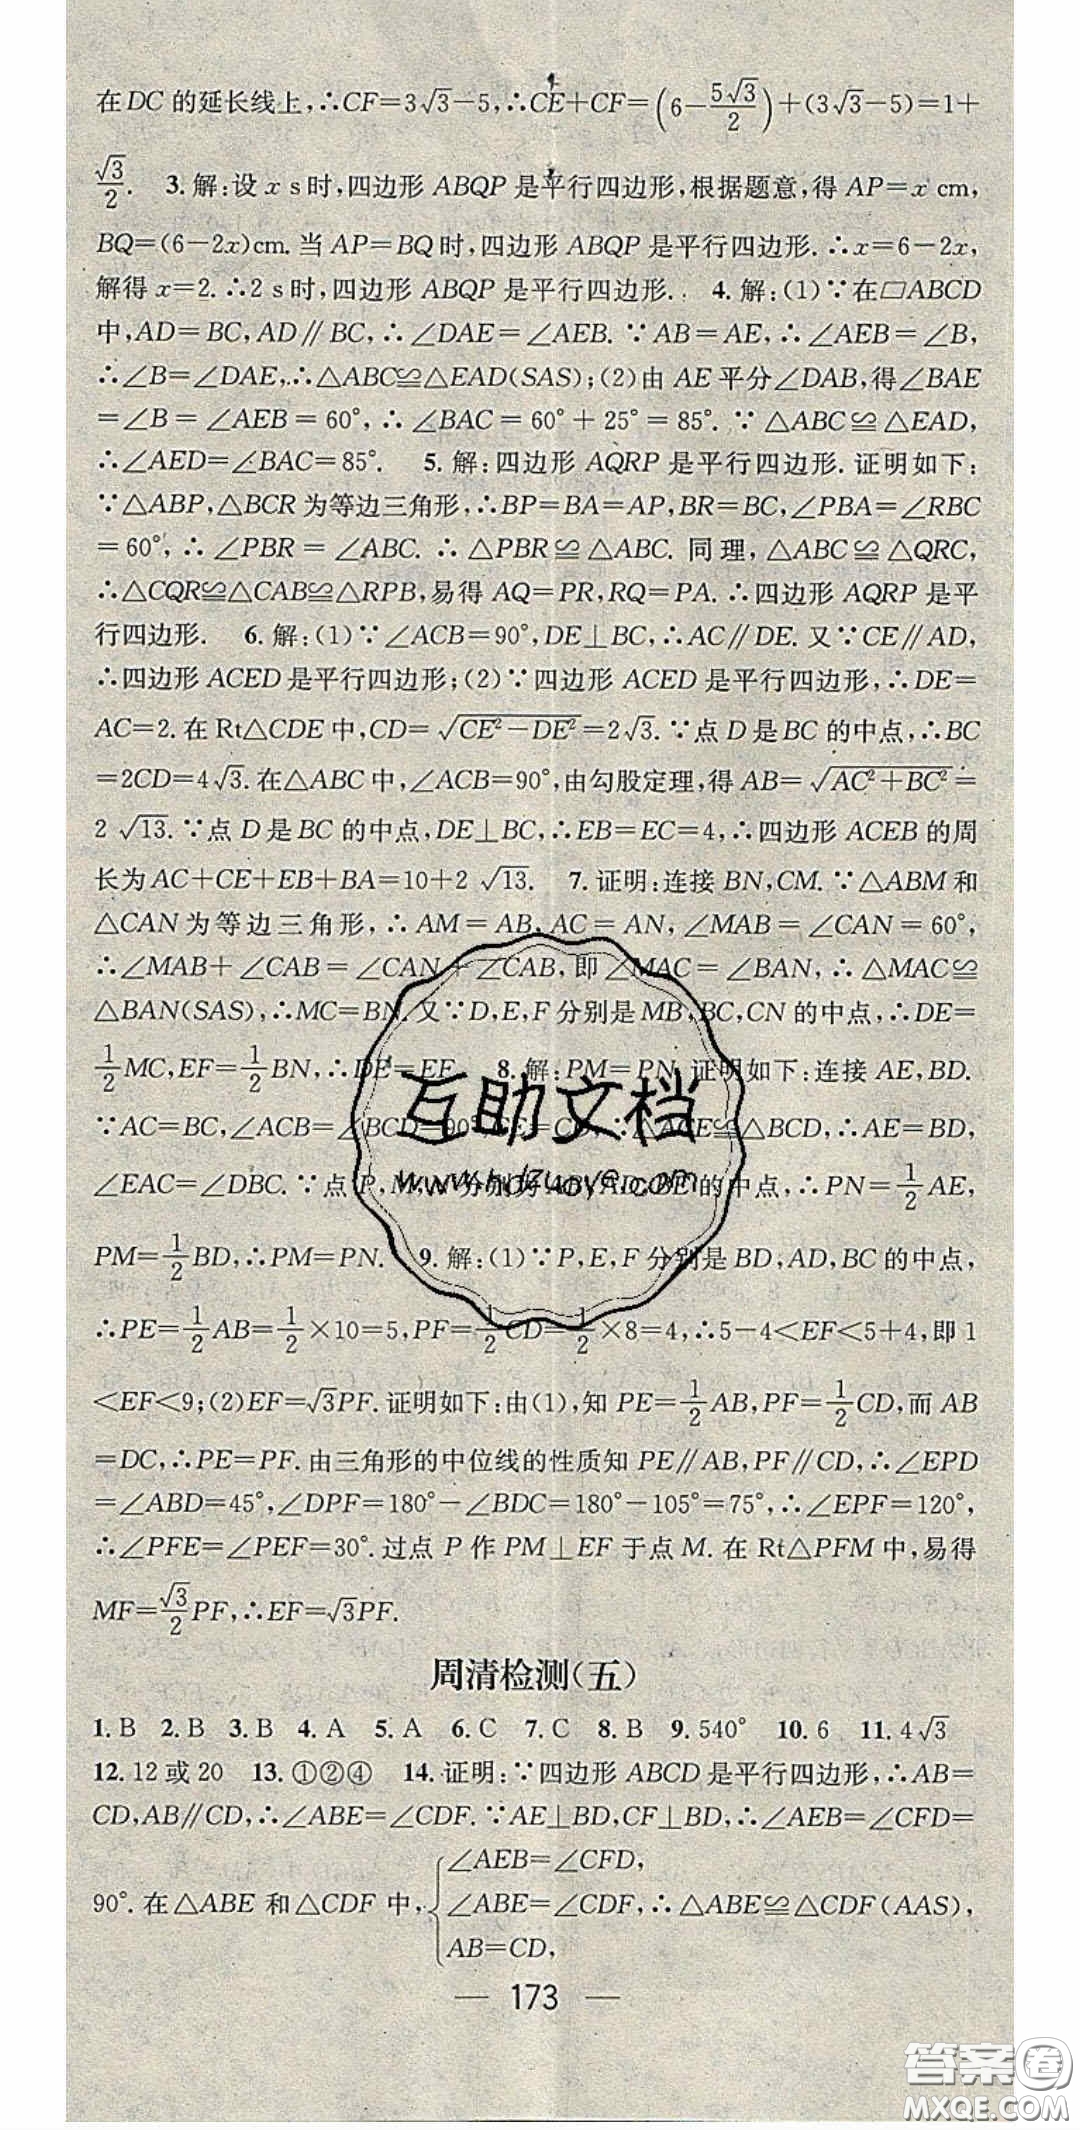 在DC的延长线上,∴CF=3√3-5,∴CE+CF=(6-5√3/2)+(3√3-5)=1+
√3/2. 3.解:设x s时,四边形ABQP是平行四边形,根据题意,得AP=x cm,
BQ=(6-2x)cm.当AP=BQ时,四边形ABQP是平行四边形.∴x=6-2x,
解得x=2.∴2 s时,四边形ABQP是平行四边形. 4.解:(1)∵在▱ABCD
中,AD=BC,AD∥BC,∴∠DAE=∠AEB.∵AB=AE,∴∠AEB=∠B,
∴∠B=∠DAE,∴△ABC≌△EAD(SAS);(2)由AE平分∠DAB,得∠BAE
=∠B=∠AEB=60°,∴∠BAC=60°+25°=85°.∵△ABC≌△EAD,
∴∠AED=∠BAC=85°. 5.解:四边形AQRP是平行四边形.证明如下:
∵△ABP,△BCR为等边三角形,∴BP=BA=AP,BR=BC,∠PBA=∠RBC
=60°,∴∠PBR=∠ABC.∴△PBR≌△ABC.同理,△ABC≌△QRC,
∴△CQR≌△CAB≌△RPB,易得AQ=PR,RQ=PA.∴四边形AQRP是平
行四边形. 6.解:(1)∵∠ACB=90°,DE⊥BC,∴AC∥DE.又∵CE∥AD,
∴四边形ACED是平行四边形;(2)∵四边形ACED是平行四边形,∴DE=
AC=2.在Rt△CDE中,CD=√(CE²-DE²)=2√3.∵点D是BC的中点,∴BC
=2CD=4√3.在△ABC中,∠ACB=90°,由勾股定理,得AB=√(AC²+BC²)=
2√13.∵点D是BC的中点,DE⊥BC,∴EB=EC=4,∴四边形ACEB的周
长为AC+CE+EB+BA=10+2√13. 7.证明:连接BN,CM.∵△ABM和
△CAN为等边三角形,∴AM=AB,AC=AN,∠MAB=∠CAN=60°,
∴∠MAB+∠CAB=∠CAN+∠CAB,即∠MAC=∠BAN,∴△MAC≌
△BAN(SAS),∴MC=BN.又∵D,E,F分别是MB,BC,CN的中点,∴DE=
1/2MC,EF=1/2BN,∴DE=EF. 8.解:PM=PN.证明如下:连接AE,BD.
∵AC=BC,∠ACB=∠BCD=90°,CE=CD,∴△ACE≌△BCD,∴AE=BD,
∠EAC=∠DBC.∵点P,M,N分别为AB,AD,BE的中点,∴PN=1/2AE,
PM=1/2BD,∴PM=PN. 9.解:(1)∵P,E,F分别是BD,AD,BC的中点,
∴PE=1/2AB=1/2×10=5,PF=1/2CD=1/2×8=4,∴5-4<EF<5+4,即1
<EF<9;(2)EF=√3PF.证明如下:由(1),知PE=1/2AB,PF=1/2CD,而AB
=DC,∴PE=PF.由三角形的中位线的性质知PE∥AB,PF∥CD,∴∠EPD
=∠ABD=45°,∠DPF=180°-∠BDC=180°-105°=75°,∴∠EPF=120°,
∴∠PFE=∠PEF=30°.过点P作PM⊥EF于点M.在Rt△PFM中,易得
MF=√3/2PF,∴EF=√3PF.
周清检测(五)
1.B 2.B 3.B 4.A 5.A 6.C 7.C 8.B 9.540° 10.6 11.4√3
12.12或20 13.①②④ 14.证明:∵四边形ABCD是平行四边形,∴AB=
CD,AB∥CD,∴∠ABE=∠CDF.∵AE⊥BD,CF⊥BD,∴∠AEB=∠CFD=
∠AEB=∠CFD,
90°.在△ABE和△CDF中,{∠ABE=∠CDF,∴△ABE≌△CDF(AAS),
AB=CD,
— 173 —
互助文档
www.hdzuoye.com
答案圈
MXQE.COM